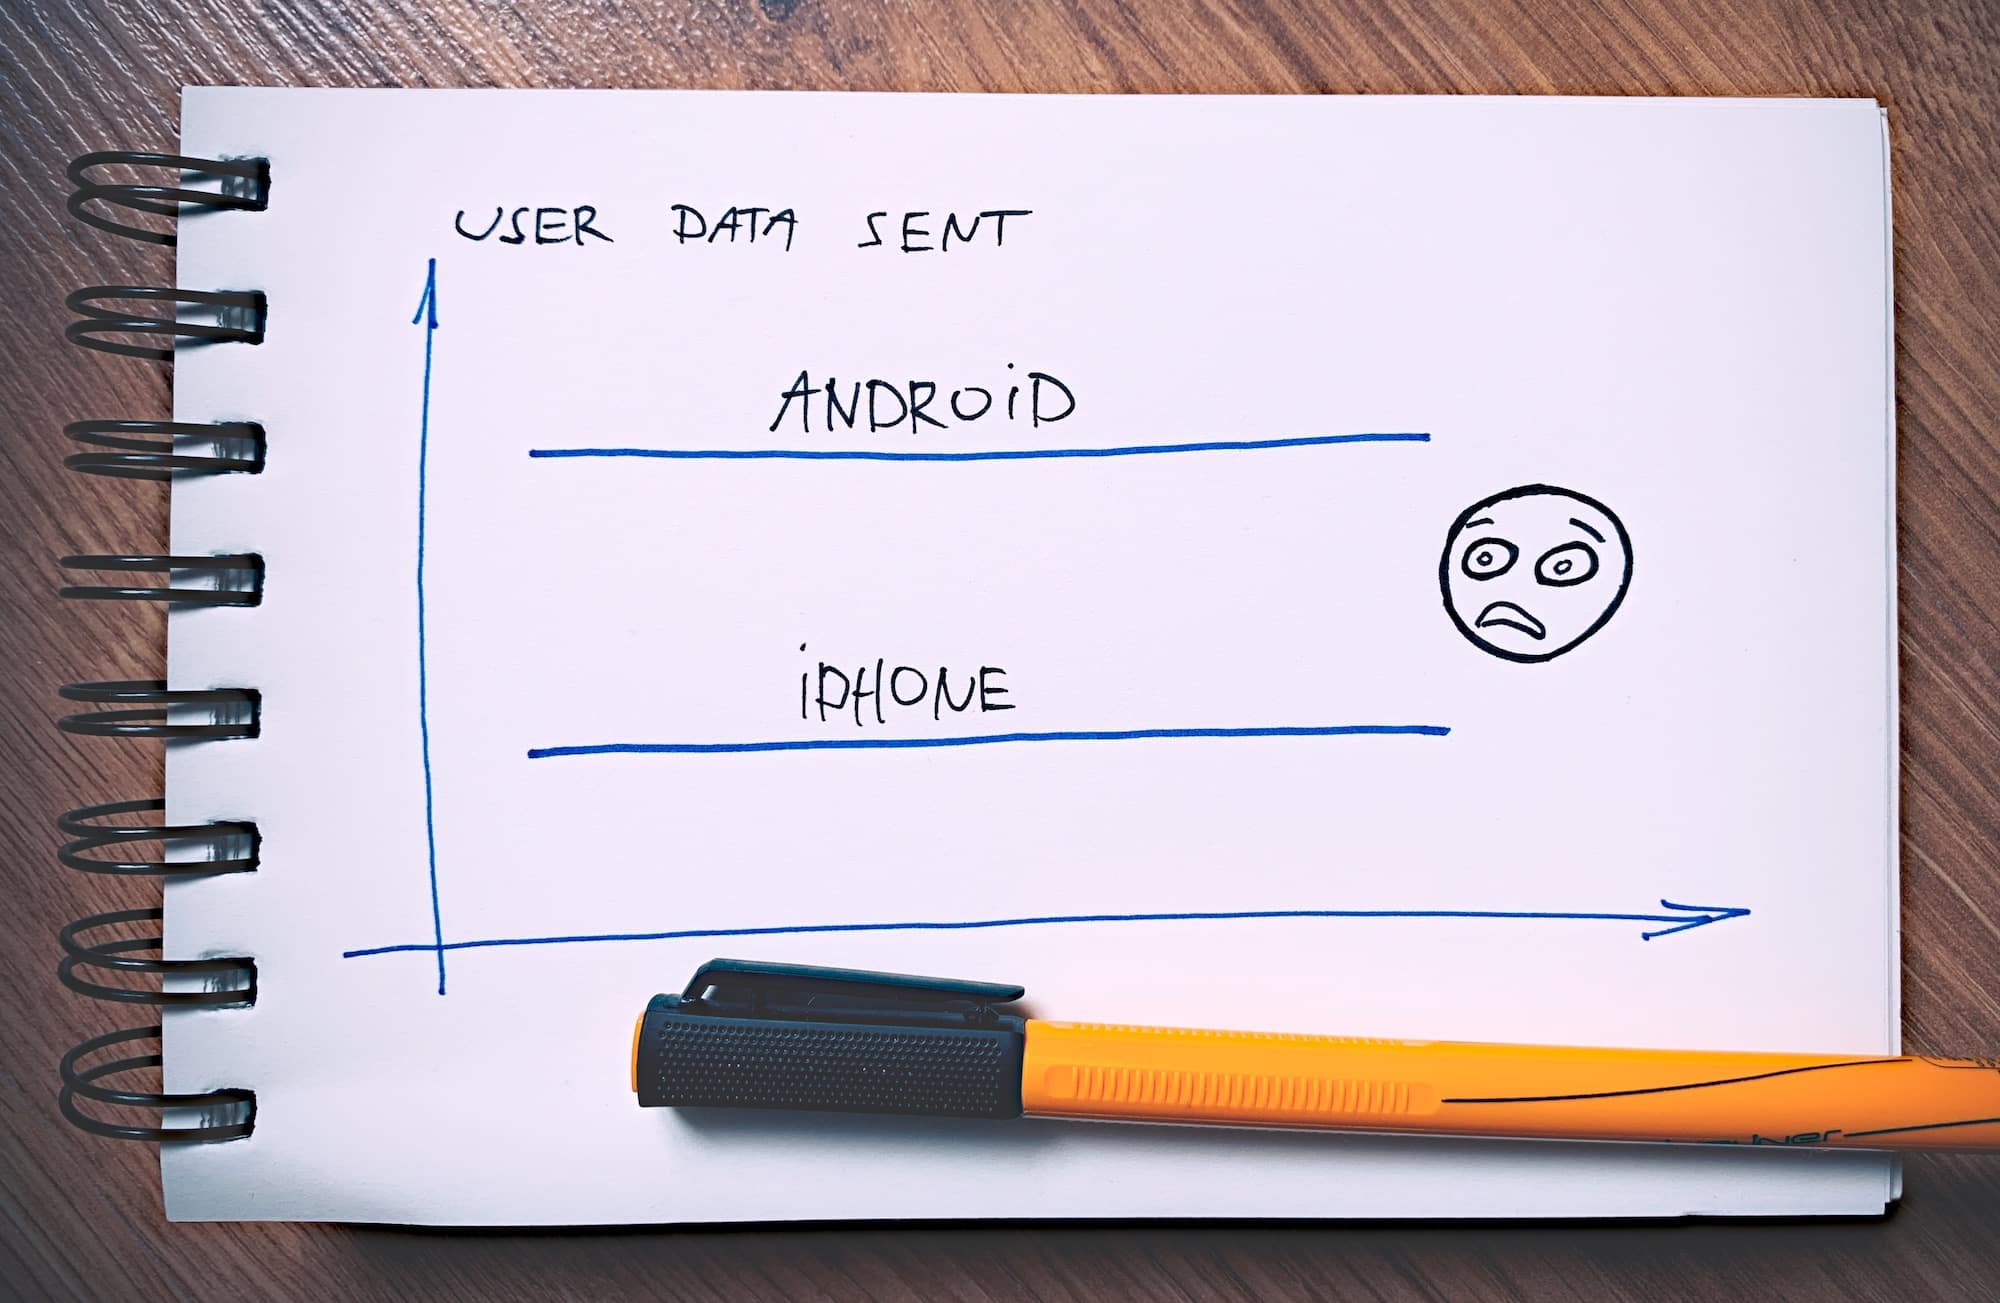 USER DATA SENT
ANDROiD
iPHONE